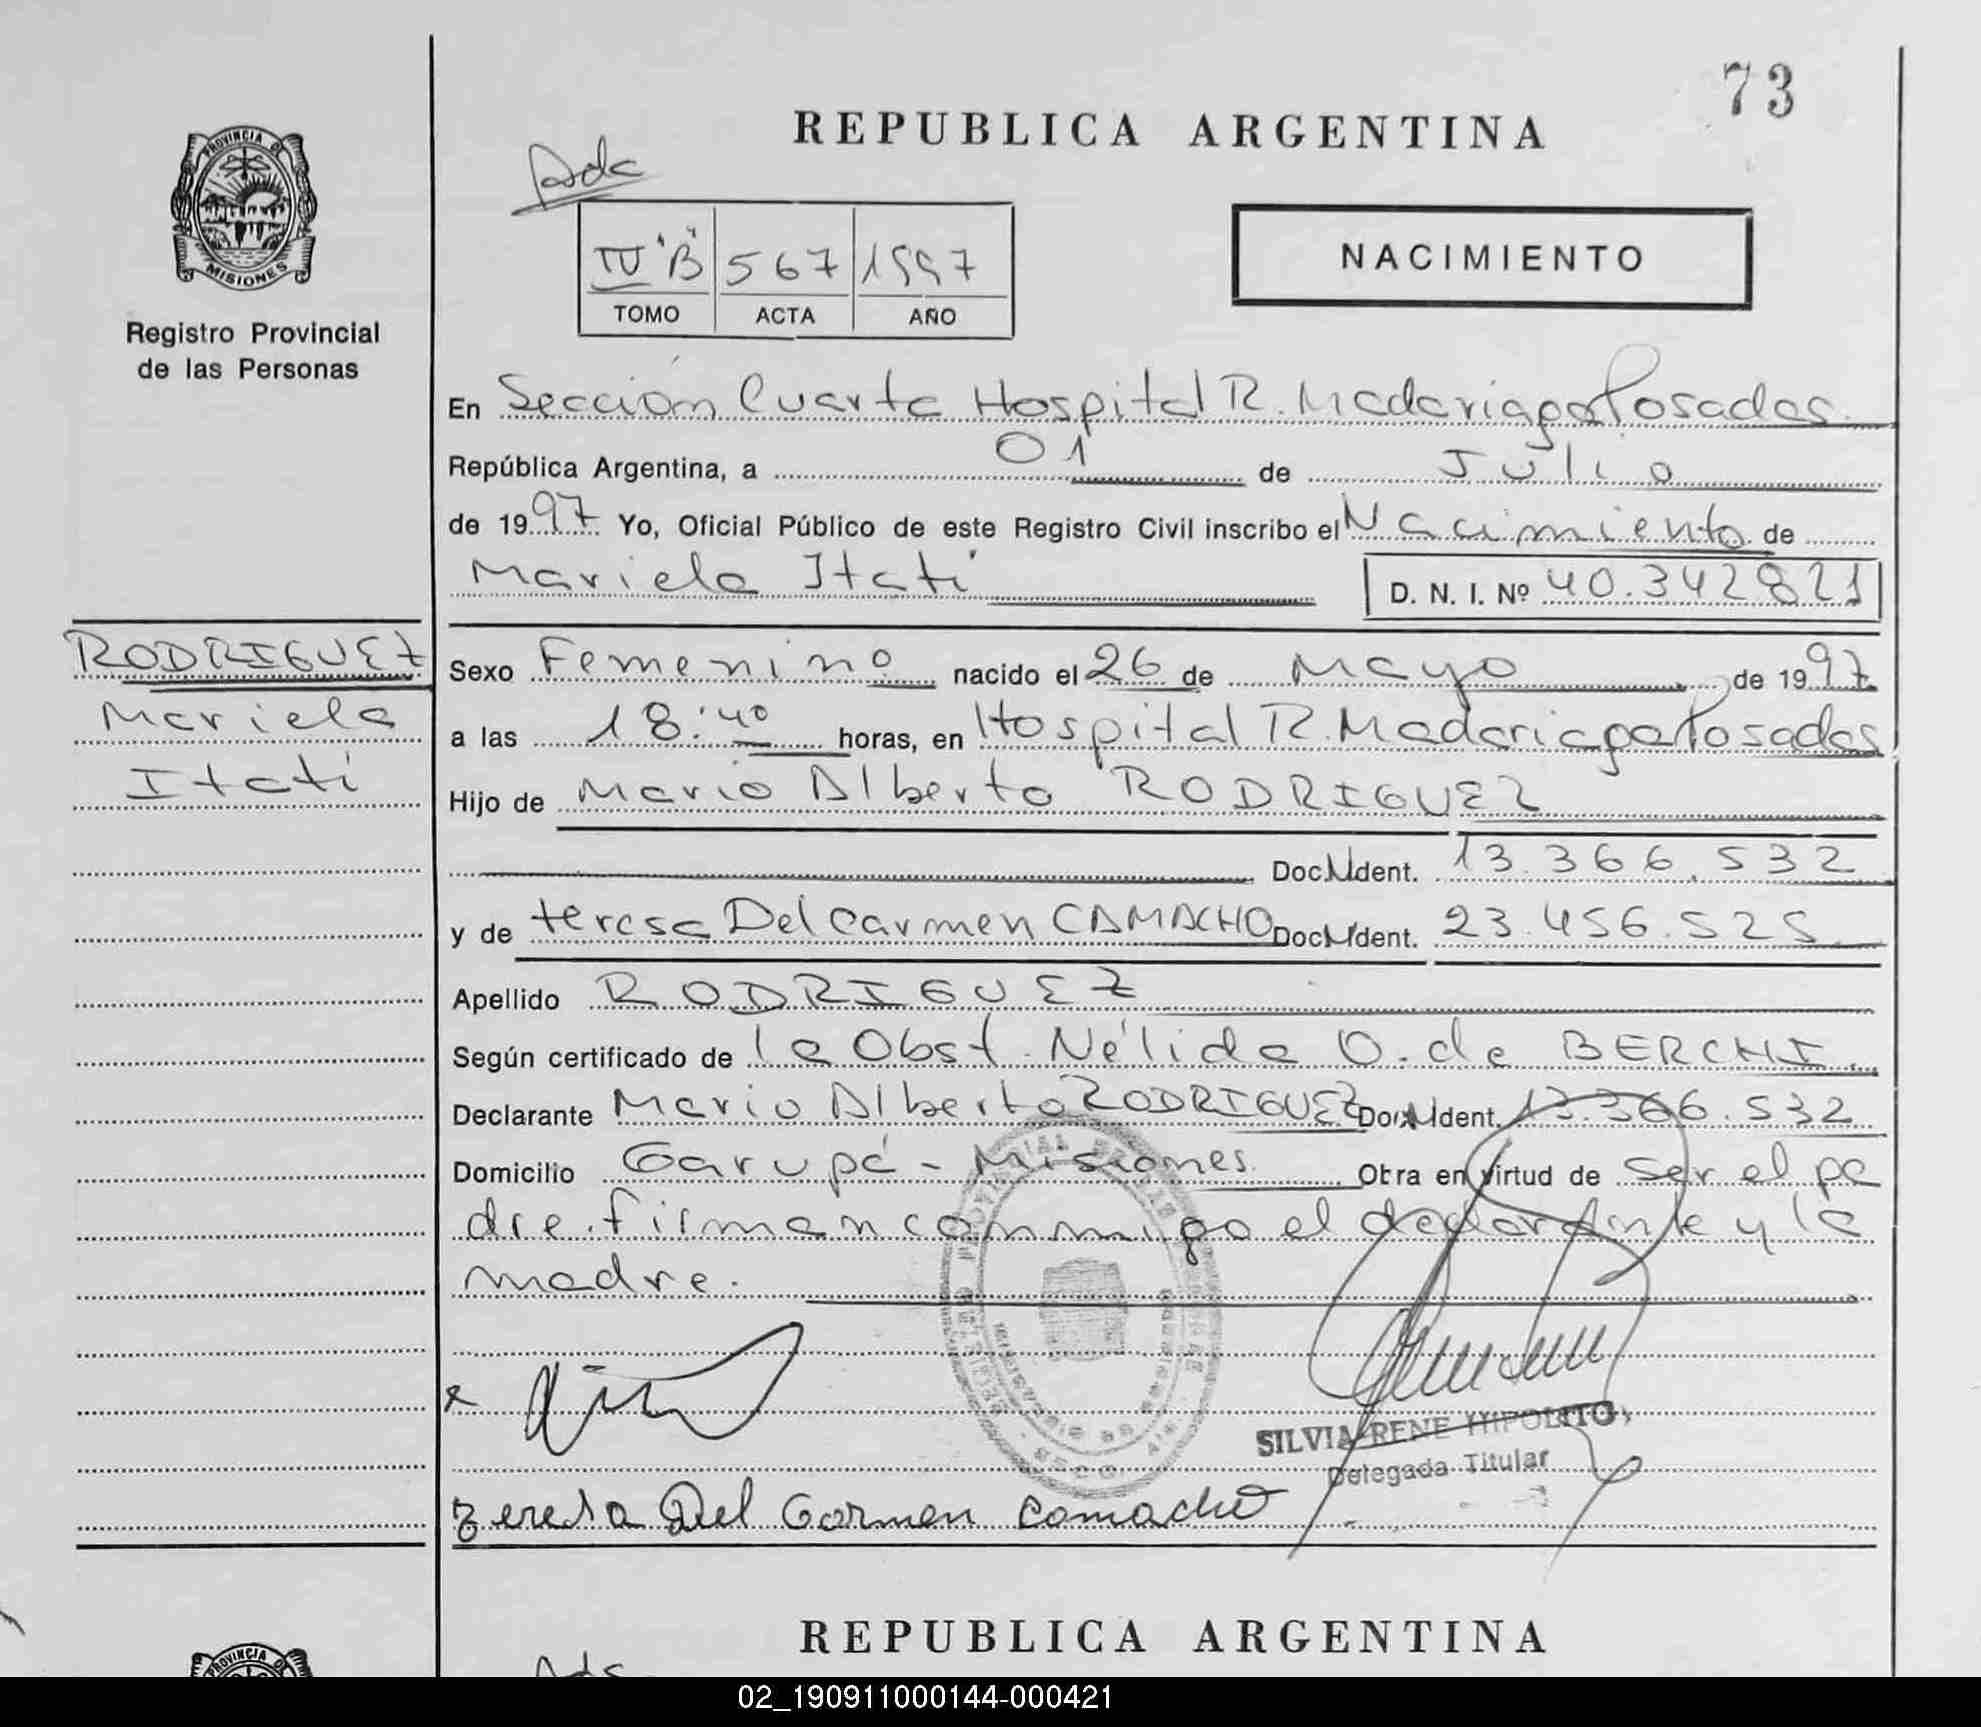 73
REPUBLICA ARGENTINA
PROVINCIA D MISIONES
Registro Provincial
de las Personas
IV "B" 567 1997
TOMO ACTA AÑO
NACIMIENTO
En Sección Cuarta Hospital R. Madariaga Posadas
República Argentina, a 01 de Julio
de 1997 Yo, Oficial Público de este Registro Civil inscribo el Nacimiento de
Mariela Itatí D. N. I. Nº 40.342821
RODRIGUEZ
Mariela
Itatí
Sexo Femenino nacido el 26 de Mayo de 1997
a las 18:40 horas, en Hospital R. Madariaga Posadas
Hijo de Mario Alberto RODRIGUEZ
Doc. Ident. 13.366.532
y de teresa Del Carmen CAMACHO Doc. Ident. 23.456.525
Apellido RODRIGUEZ
Según certificado de la Obst. Nélida O. de BERCHI
Declarante Mario Alberto RODRIGUEZ Doc. Ident. 13.366.532
Domicilio Garupá - Misiones Obra en virtud de ser el pa
dre. firman conmigo el declarante y la
madre.
SILVIA RENE HIPOLITO
Delegada Titular
Teresa Del Carmen Camacho
REPUBLICA ARGENTINA
PROVINCIA D
02_190911000144-000421